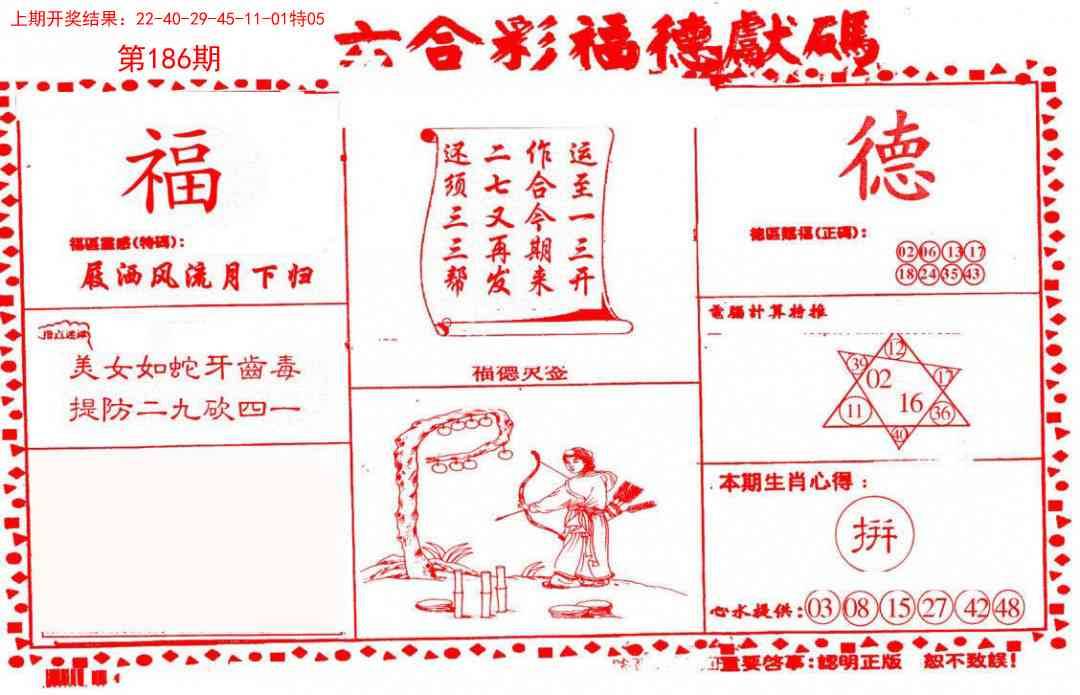 上期开奖结果：22-40-29-45-11-01特05
第186期
六合彩福德獻碼
福
福區靈感(特碼)：
屐洒风流月下归
指点迷津
美女如蛇牙齒毒
提防二九砍四一
运至一三开
作合今期来
二七又再发
还须三三帮
福德灵签
德
德區賜福(正碼)：
02 06 13 17
18 24 35 43
電腦計算特推
12
39 02 17
11 16 36
40
本期生肖心得：
拼
心水提供：03 08 15 27 42 48
重要啓事：認明正版 恕不致誤！